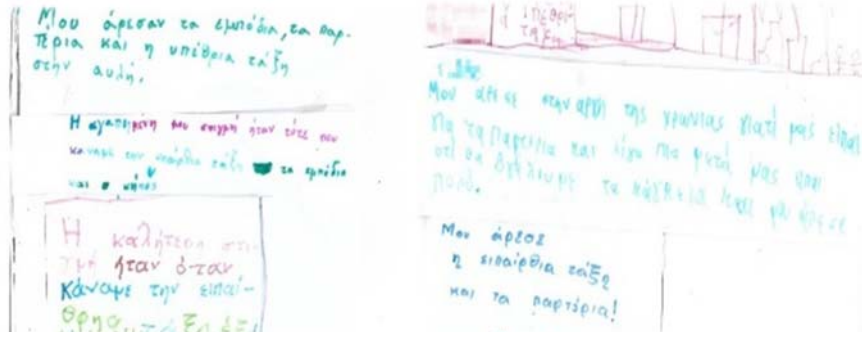 Μου άρεσαν τα εμπόδια, τα παρ-
τέρια και η υπέθρια τάξη
στην αυλή.
Η αγαπημένη μου στιγμή ήταν τότε που
κάναμε την υπαίρθια τάξη τα εμπόδια
και ο κήπος
Η καλήτερη στι-
γμή ήταν ό-ταν
κάναμε την επαί-
θρηα τάξη έξ
υπέθρι
τάξη
Μου άρεσε στην αρχή της χρονιάς γιατί μας είπαν
για τα παρτέρια και λίγο πιο μετά μας
ότι θα
πολύ.
Μου άρεσε
η επαίρθια τάξη
και τα παρτέρια!